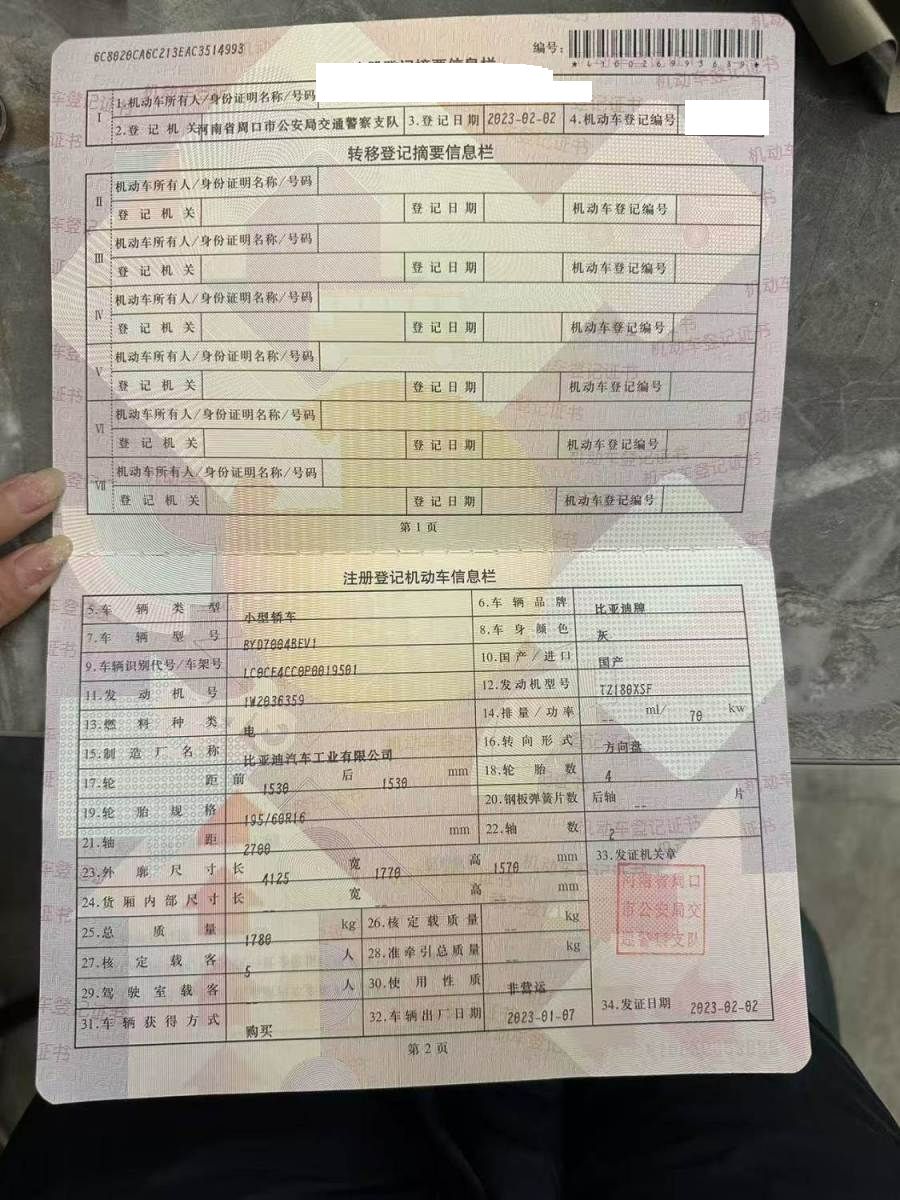 6C8020CA6C213EAC3514993
编号:
登记摘要信息栏
I 1.机动车所有人/身份证明名称/号码
2.登记机关 河南省周口市公安局交通警察支队 3.登记日期 2023-02-02 4.机动车登记编号
转移登记摘要信息栏
II 机动车所有人/身份证明名称/号码
登记机关 登记日期 机动车登记编号
III 机动车所有人/身份证明名称/号码
登记机关 登记日期 机动车登记编号
IV 机动车所有人/身份证明名称/号码
登记机关 登记日期 机动车登记编号
V 机动车所有人/身份证明名称/号码
登记机关 登记日期 机动车登记编号
VI 机动车所有人/身份证明名称/号码
登记机关 登记日期 机动车登记编号
VII 机动车所有人/身份证明名称/号码
登记机关 登记日期 机动车登记编号
第1页
注册登记机动车信息栏
5.车辆类型 小型轿车 6.车辆品牌 比亚迪牌
7.车辆型号 BYD7004BEV1 8.车身颜色 灰
9.车辆识别代号/车架号 LC0CE4CC0P0019501 10.国产/进口 国产
11.发动机号 1W2036359 12.发动机型号 TZ180XSF
13.燃料种类 电 14.排量/功率 -- ml/ 70 kw
15.制造厂名称 比亚迪汽车工业有限公司 16.转向形式 方向盘
17.轮距 前 1530 后 1530 mm 18.轮胎数 4
19.轮胎规格 195/60R16 20.钢板弹簧片数 后轴 -- 片
21.轴距 2700 mm 22.轴数 2
23.外廓尺寸 长 4125 宽 1770 高 1570 mm 33.发证机关章
24.货厢内部尺寸 长 -- 宽 -- 高 -- mm
河南省周口
市公安局交
通警察支队
25.总质量 1780 kg 26.核定载质量 -- kg
27.核定载客 5 人 28.准牵引总质量 -- kg
29.驾驶室载客 -- 人 30.使用性质 非营运
31.车辆获得方式 购买 32.车辆出厂日期 2023-01-07 34.发证日期 2023-02-02
第2页